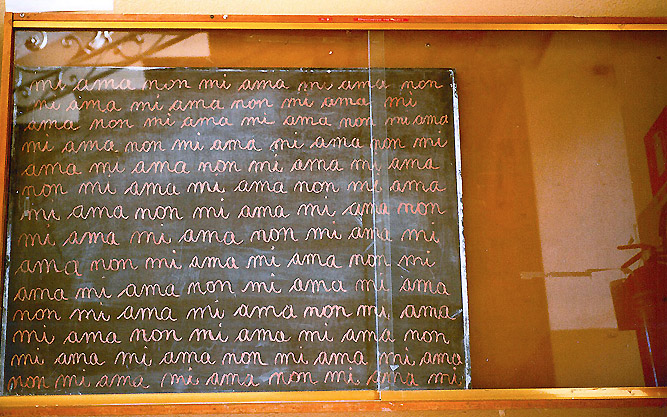 mi ama non mi ama mi ama non
mi ama mi ama non mi ama mi
ama non mi ama mi ama non mi ama
mi ama non mi ama mi ama non mi
ama mi ama non mi ama mi ama
non mi ama mi ama non mi ama
mi ama non mi ama mi ama non
mi ama mi ama non mi ama mi
ama non mi ama mi ama non mi
ama mi ama non mi ama mi ama
non mi ama mi ama non mi ama
mi ama non mi ama mi ama non
mi ama mi ama non mi ama mi ama
non mi ama mi ama non mi ama mi